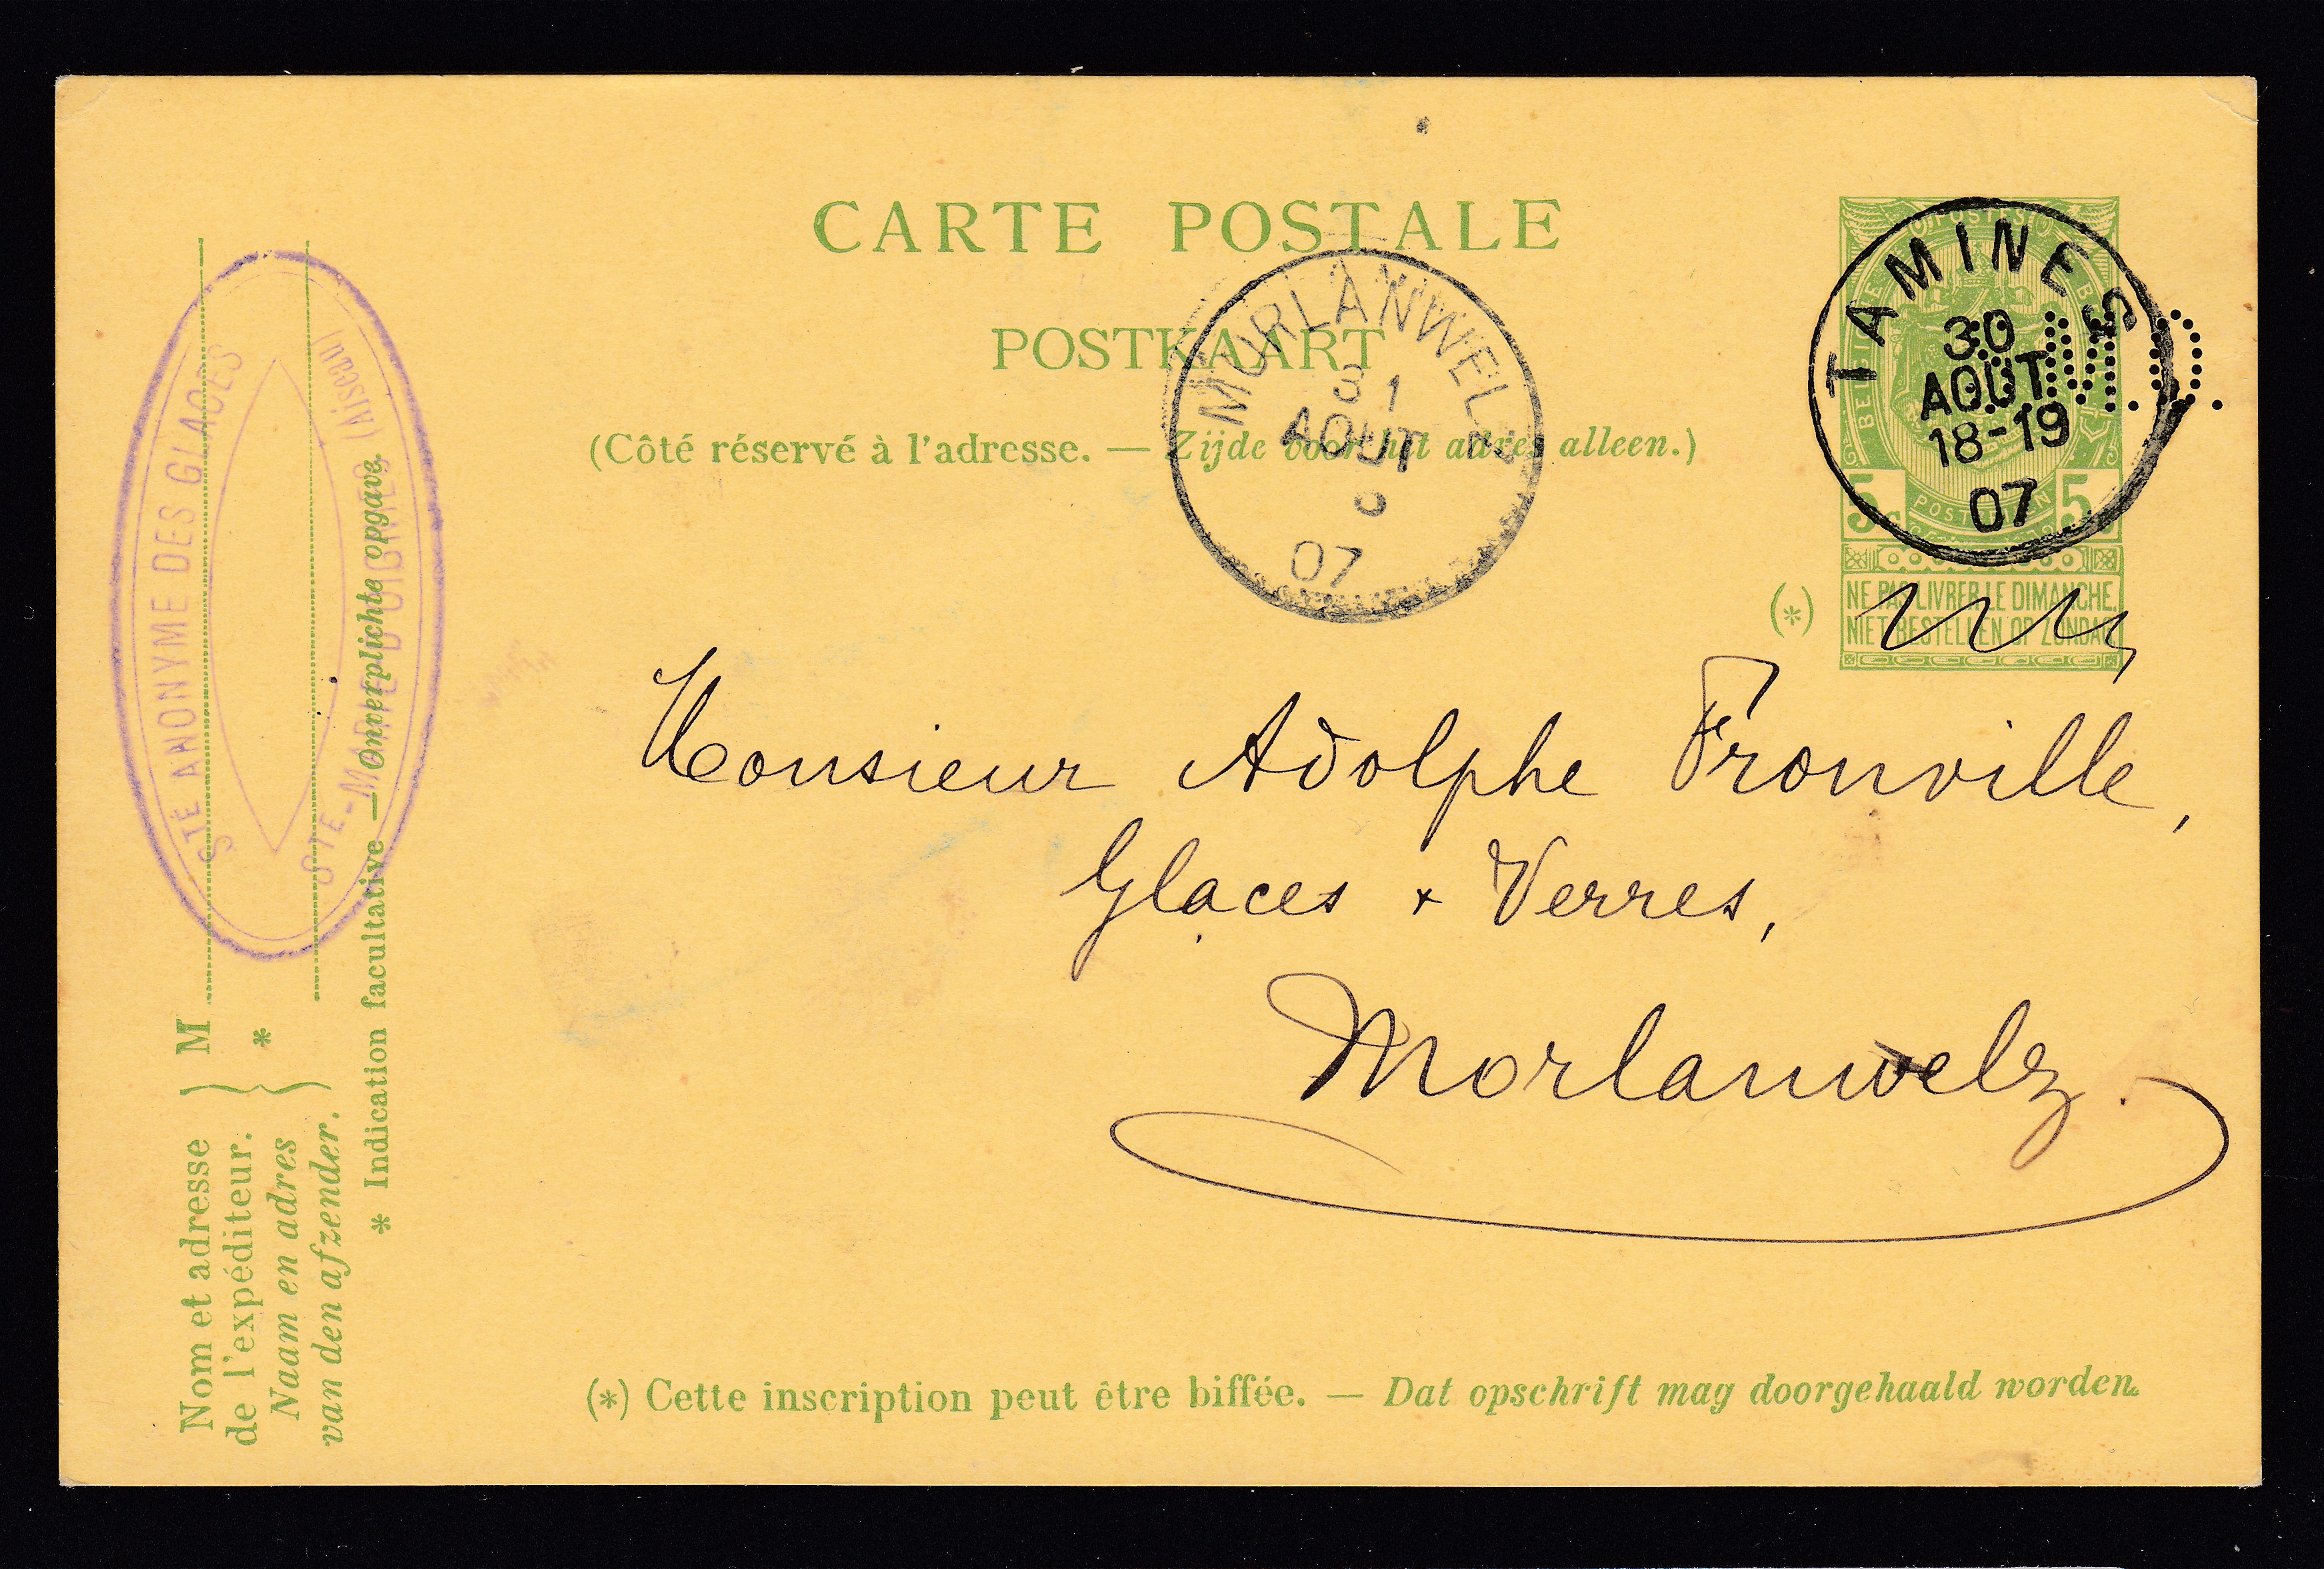 CARTE POSTALE
POSTKAART
(Côté réservé à l'adresse. — Zijde voor het adres alleen.)
MORLANWELZ
31
AOUT
07
TAMINES
30
AOUT
18-19
07
POSTES
BELGIQUE
5c 5c
POSTERIJEN
S.M.D.
(*)
NE PAS LIVRER LE DIMANCHE.
NIET BESTELLEN OP ZONDAG.
Monsieur Adolphe Fronville,
Glaces & Verres,
Morlanwelz.
(*) Cette inscription peut être biffée. — Dat opschrift mag doorgehaald worden.
Nom et adresse
de l'expéditeur.
Naam en adres
van den afzender.
M
*
* Indication facultative — Onverplichte opgave.
STÉ ANONYME DES GLACES
STE-MARIE D'OIGNIES (Aiseau)